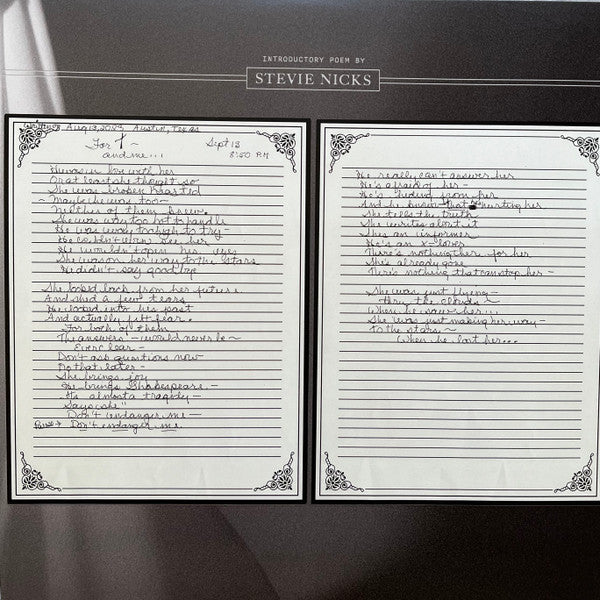 INTRODUCTORY POEM BY
STEVIE NICKS
Written Aug 13, 2023 Austin, Texas
For T ~
and me...
Sept 13
8:50 PM
He was in love with her
Or at least she thought so
She was broken hearted
~ Maybe he was too ~
Neither of them knew
She was way too hot to handle
He was way too high to try —
He couldn't even see her
He wouldn't open his eyes
She was on her way to the stars
He didn't say good bye
She looked back from her future
And shed a few tears
He looked into his past
And actually felt fear.
For both of them
The answers — would never be ~
Ever clear —
Don't ask questions now
Do that later —
She brings joy
He brings Shakespeare —
It's almost a tragedy —
Says she"
Don't endanger me —
Don't endanger me
He really can't answer her
He's afraid of her —
He's hiding from her
And he knows that hurting her
She tells the truth
She writes about it
She's an informer
He's an x-lover
There's nothing there for her
She's already gone
There's nothing that can stop her —
She was just flying —
thru the clouds ~
When he saw her...
She was just making her way —
to the stars ~
When he lost her...